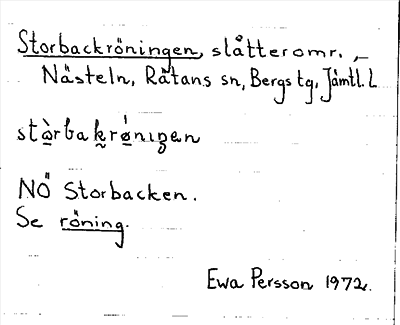 Storbackröningen, slåtteromr., –
Nästeln, Rätans sn, Bergs tg, Jämtl. L
stȯ̀rbakrǿnıgen
NÖ Storbacken.
Se röning.
Ewa Persson 1972.